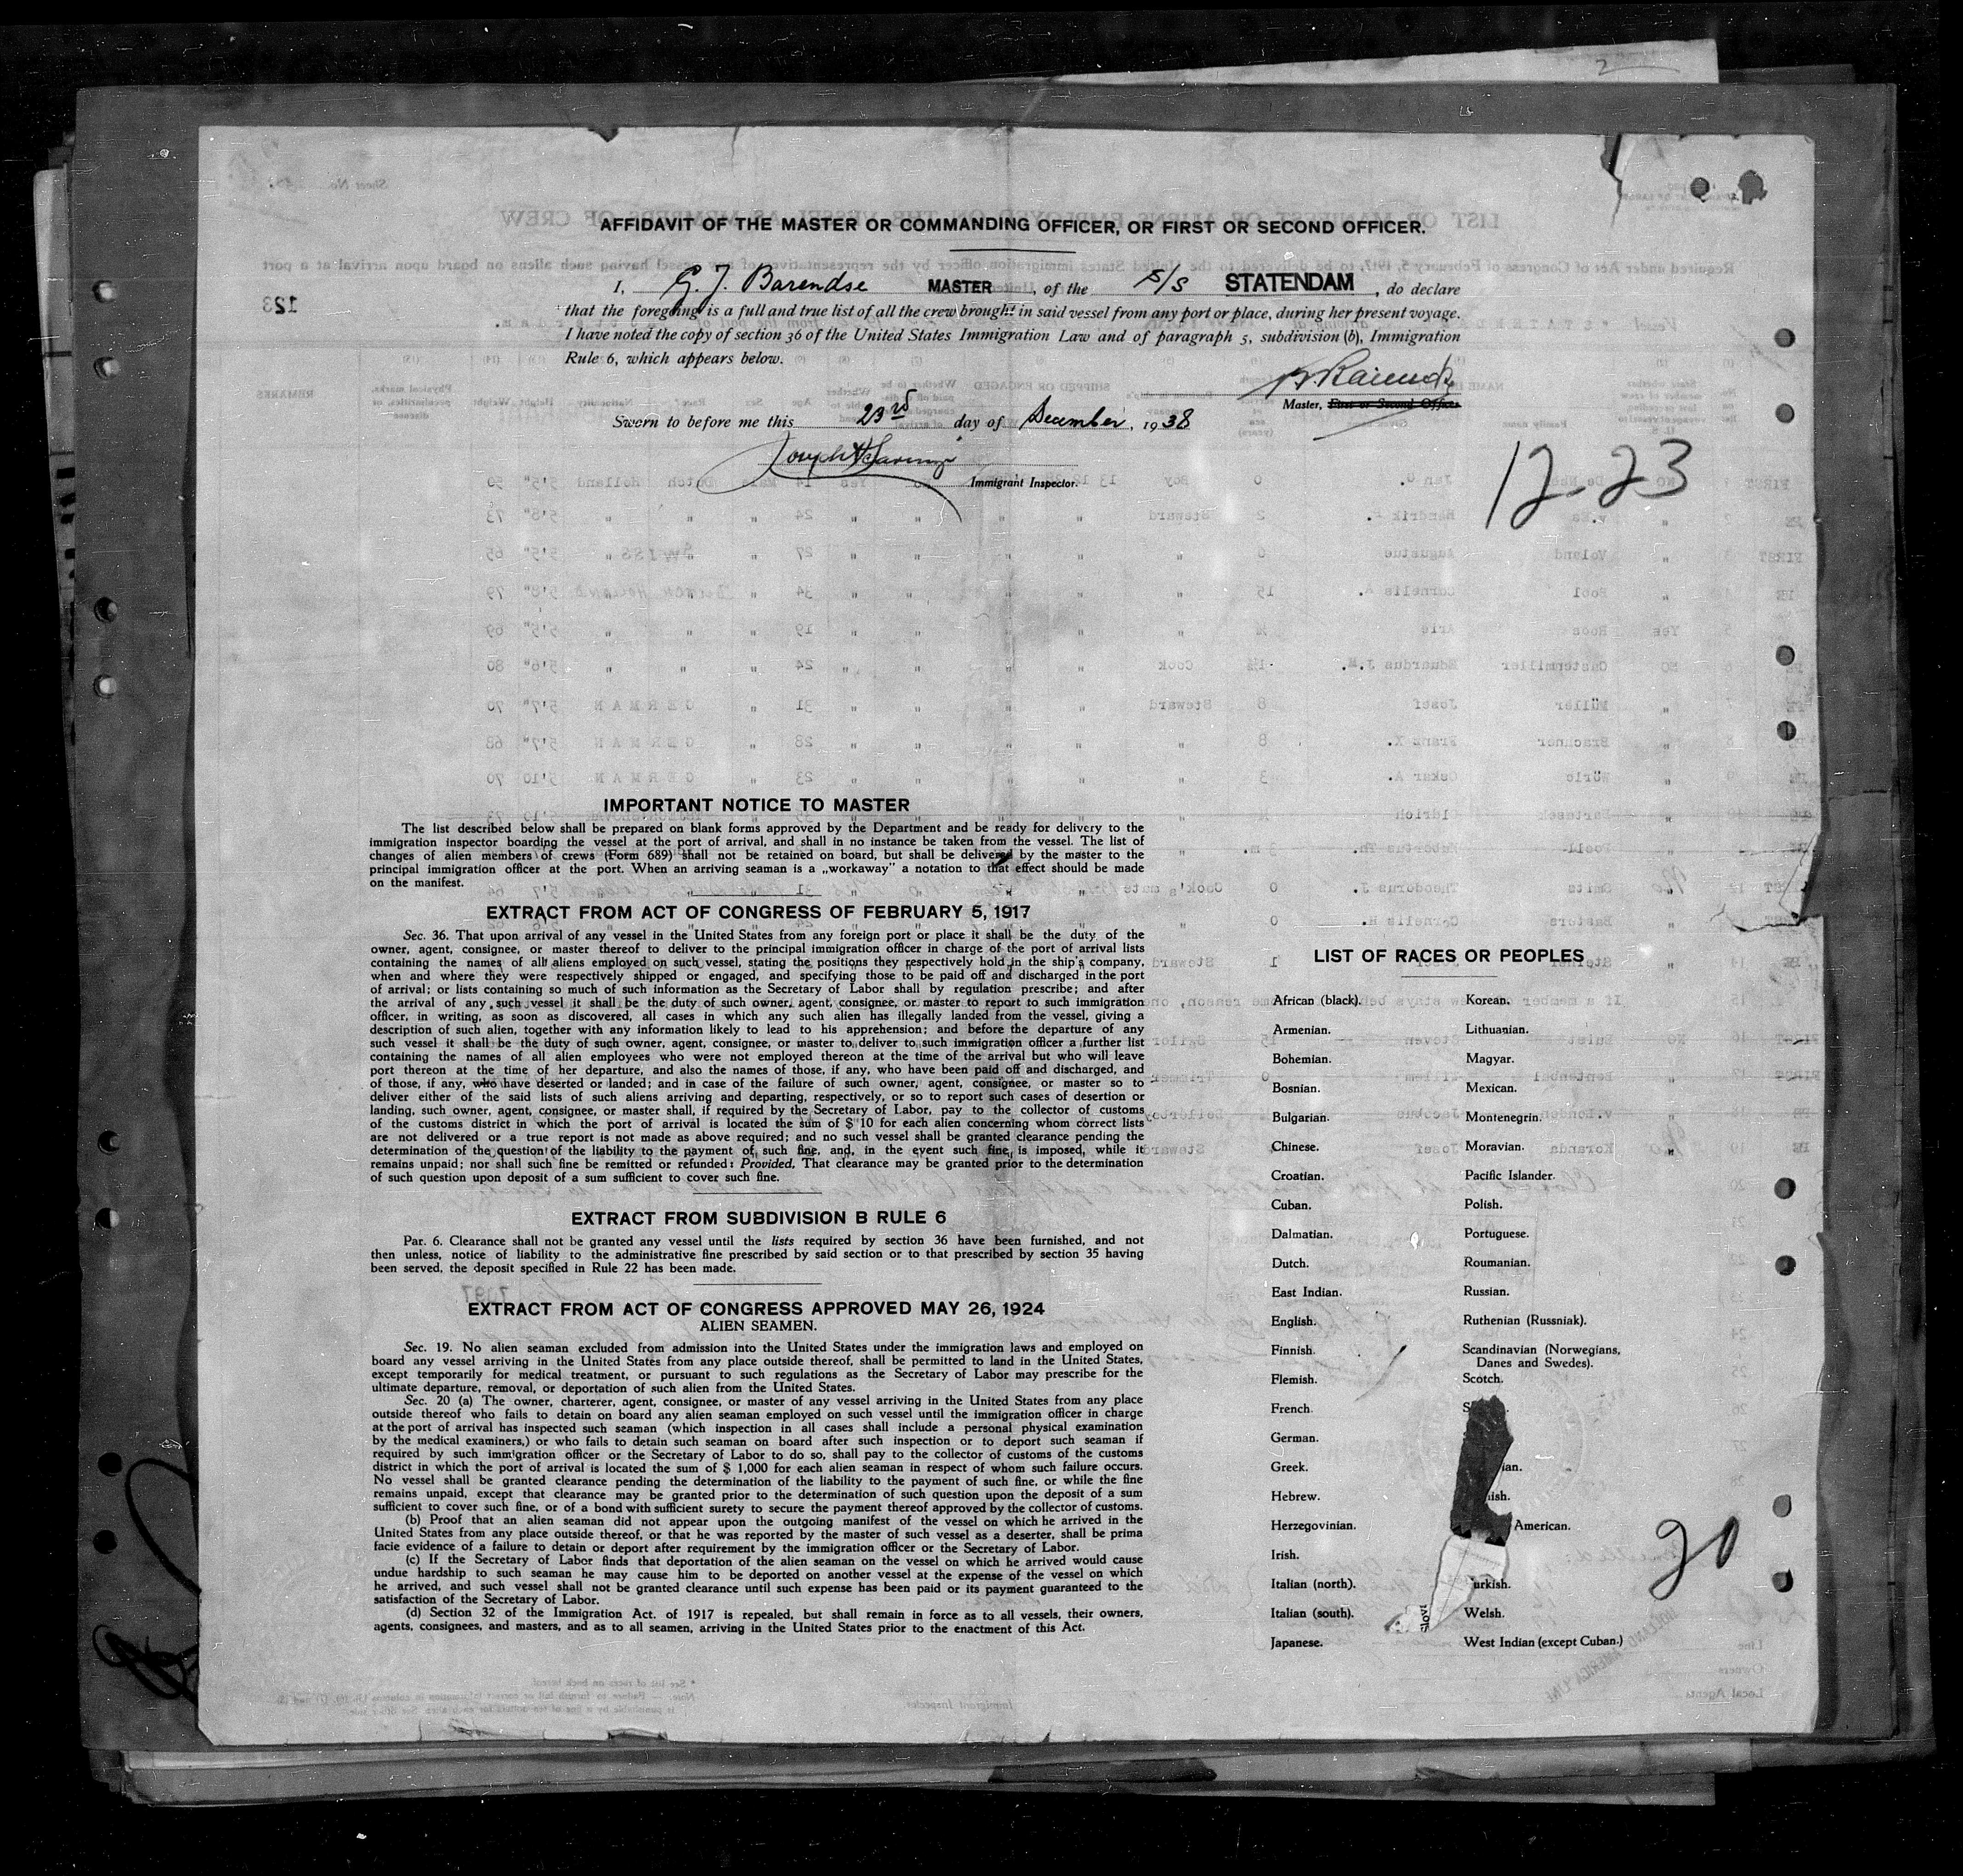 AFFIDAVIT OF THE MASTER OR COMMANDING OFFICER, OR FIRST OR SECOND OFFICER.
I, G. J. Barendse MASTER, of the S/S STATENDAM, do declare
that the foregoing is a full and true list of all the crew brought in said vessel from any port or place, during her present voyage.
I have noted the copy of section 36 of the United States Immigration Law and of paragraph 5, subdivision (b), Immigration
Rule 6, which appears below.
Master, First or Second Officer.
Sworn to before me this 23rd day of December, 1938
Immigrant Inspector.
12-23
IMPORTANT NOTICE TO MASTER
The list described below shall be prepared on blank forms approved by the Department and be ready for delivery to the
immigration inspector boarding the vessel at the port of arrival, and shall in no instance be taken from the vessel. The list of
changes of alien members of crews (Form 689) shall not be retained on board, but shall be delivered by the master to the
principal immigration officer at the port. When an arriving seaman is a „workaway” a notation to that effect should be made
on the manifest.
EXTRACT FROM ACT OF CONGRESS OF FEBRUARY 5, 1917
Sec. 36. That upon arrival of any vessel in the United States from any foreign port or place it shall be the duty of the
owner, agent, consignee, or master thereof to deliver to the principal immigration officer in charge of the port of arrival lists
containing the names of all aliens employed on such vessel, stating the positions they respectively hold in the ship's company,
when and where they were respectively shipped or engaged, and specifying those to be paid off and discharged in the port
of arrival; or lists containing so much of such information as the Secretary of Labor shall by regulation prescribe; and after
the arrival of any such vessel it shall be the duty of such owner, agent, consignee, or master to report to such immigration
officer, in writing, as soon as discovered, all cases in which any such alien has illegally landed from the vessel, giving a
description of such alien, together with any information likely to lead to his apprehension; and before the departure of any
such vessel it shall be the duty of such owner, agent, consignee, or master to deliver to such immigration officer a further list
containing the names of all alien employees who were not employed thereon at the time of the arrival but who will leave
port thereon at the time of her departure, and also the names of those, if any, who have been paid off and discharged, and
of those, if any, who have deserted or landed; and in case of the failure of such owner, agent, consignee, or master so to
deliver either of the said lists of such aliens arriving and departing, respectively, or so to report such cases of desertion or
landing, such owner, agent, consignee, or master shall, if required by the Secretary of Labor, pay to the collector of customs
of the customs district in which the port of arrival is located the sum of $ 10 for each alien concerning whom correct lists
are not delivered or a true report is not made as above required; and no such vessel shall be granted clearance pending the
determination of the question of the liability to the payment of such fine, and, in the event such fine, is imposed, while it
remains unpaid; nor shall such fine be remitted or refunded: Provided, That clearance may be granted prior to the determination
of such question upon deposit of a sum sufficient to cover such fine.
EXTRACT FROM SUBDIVISION B RULE 6
Par. 6. Clearance shall not be granted any vessel until the lists required by section 36 have been furnished, and not
then unless, notice of liability to the administrative fine prescribed by said section or to that prescribed by section 35 having
been served, the deposit specified in Rule 22 has been made.
EXTRACT FROM ACT OF CONGRESS APPROVED MAY 26, 1924
ALIEN SEAMEN.
Sec. 19. No alien seaman excluded from admission into the United States under the immigration laws and employed on
board any vessel arriving in the United States from any place outside thereof, shall be permitted to land in the United States,
except temporarily for medical treatment, or pursuant to such regulations as the Secretary of Labor may prescribe for the
ultimate departure, removal, or deportation of such alien from the United States.
Sec. 20 (a) The owner, charterer, agent, consignee, or master of any vessel arriving in the United States from any place
outside thereof who fails to detain on board any alien seaman employed on such vessel until the immigration officer in charge
at the port of arrival has inspected such seaman (which inspection in all cases shall include a personal physical examination
by the medical examiners,) or who fails to detain such seaman on board after such inspection or to deport such seaman if
required by such immigration officer or the Secretary of Labor to do so, shall pay to the collector of customs of the customs
district in which the port of arrival is located the sum of $ 1,000 for each alien seaman in respect of whom such failure occurs.
No vessel shall be granted clearance pending the determination of the liability to the payment of such fine, or while the fine
remains unpaid, except that clearance may be granted prior to the determination of such question upon the deposit of a sum
sufficient to cover such fine, or of a bond with sufficient surety to secure the payment thereof approved by the collector of customs.
(b) Proof that an alien seaman did not appear upon the outgoing manifest of the vessel on which he arrived in the
United States from any place outside thereof, or that he was reported by the master of such vessel as a deserter, shall be prima
facie evidence of a failure to detain or deport after requirement by the immigration officer or the Secretary of Labor.
(c) If the Secretary of Labor finds that deportation of the alien seaman on the vessel on which he arrived would cause
undue hardship to such seaman he may cause him to be deported on another vessel at the expense of the vessel on which
he arrived, and such vessel shall not be granted clearance until such expense has been paid or its payment guaranteed to the
satisfaction of the Secretary of Labor.
(d) Section 32 of the Immigration Act. of 1917 is repealed, but shall remain in force as to all vessels, their owners,
agents, consignees, and masters, and as to all seamen, arriving in the United States prior to the enactment of this Act.
LIST OF RACES OR PEOPLES
African (black).
Armenian.
Bohemian.
Bosnian.
Bulgarian.
Chinese.
Croatian.
Cuban.
Dalmatian.
Dutch.
East Indian.
English.
Finnish.
Flemish.
French.
German.
Greek.
Hebrew.
Herzegovinian.
Irish.
Italian (north).
Italian (south).
Japanese.
Korean.
Lithuanian.
Magyar.
Mexican.
Montenegrin.
Moravian.
Pacific Islander.
Polish.
Portuguese.
Roumanian.
Russian.
Ruthenian (Russniak).
Scandinavian (Norwegians,
Danes and Swedes).
Scotch.
American.
Welsh.
West Indian (except Cuban.)
20